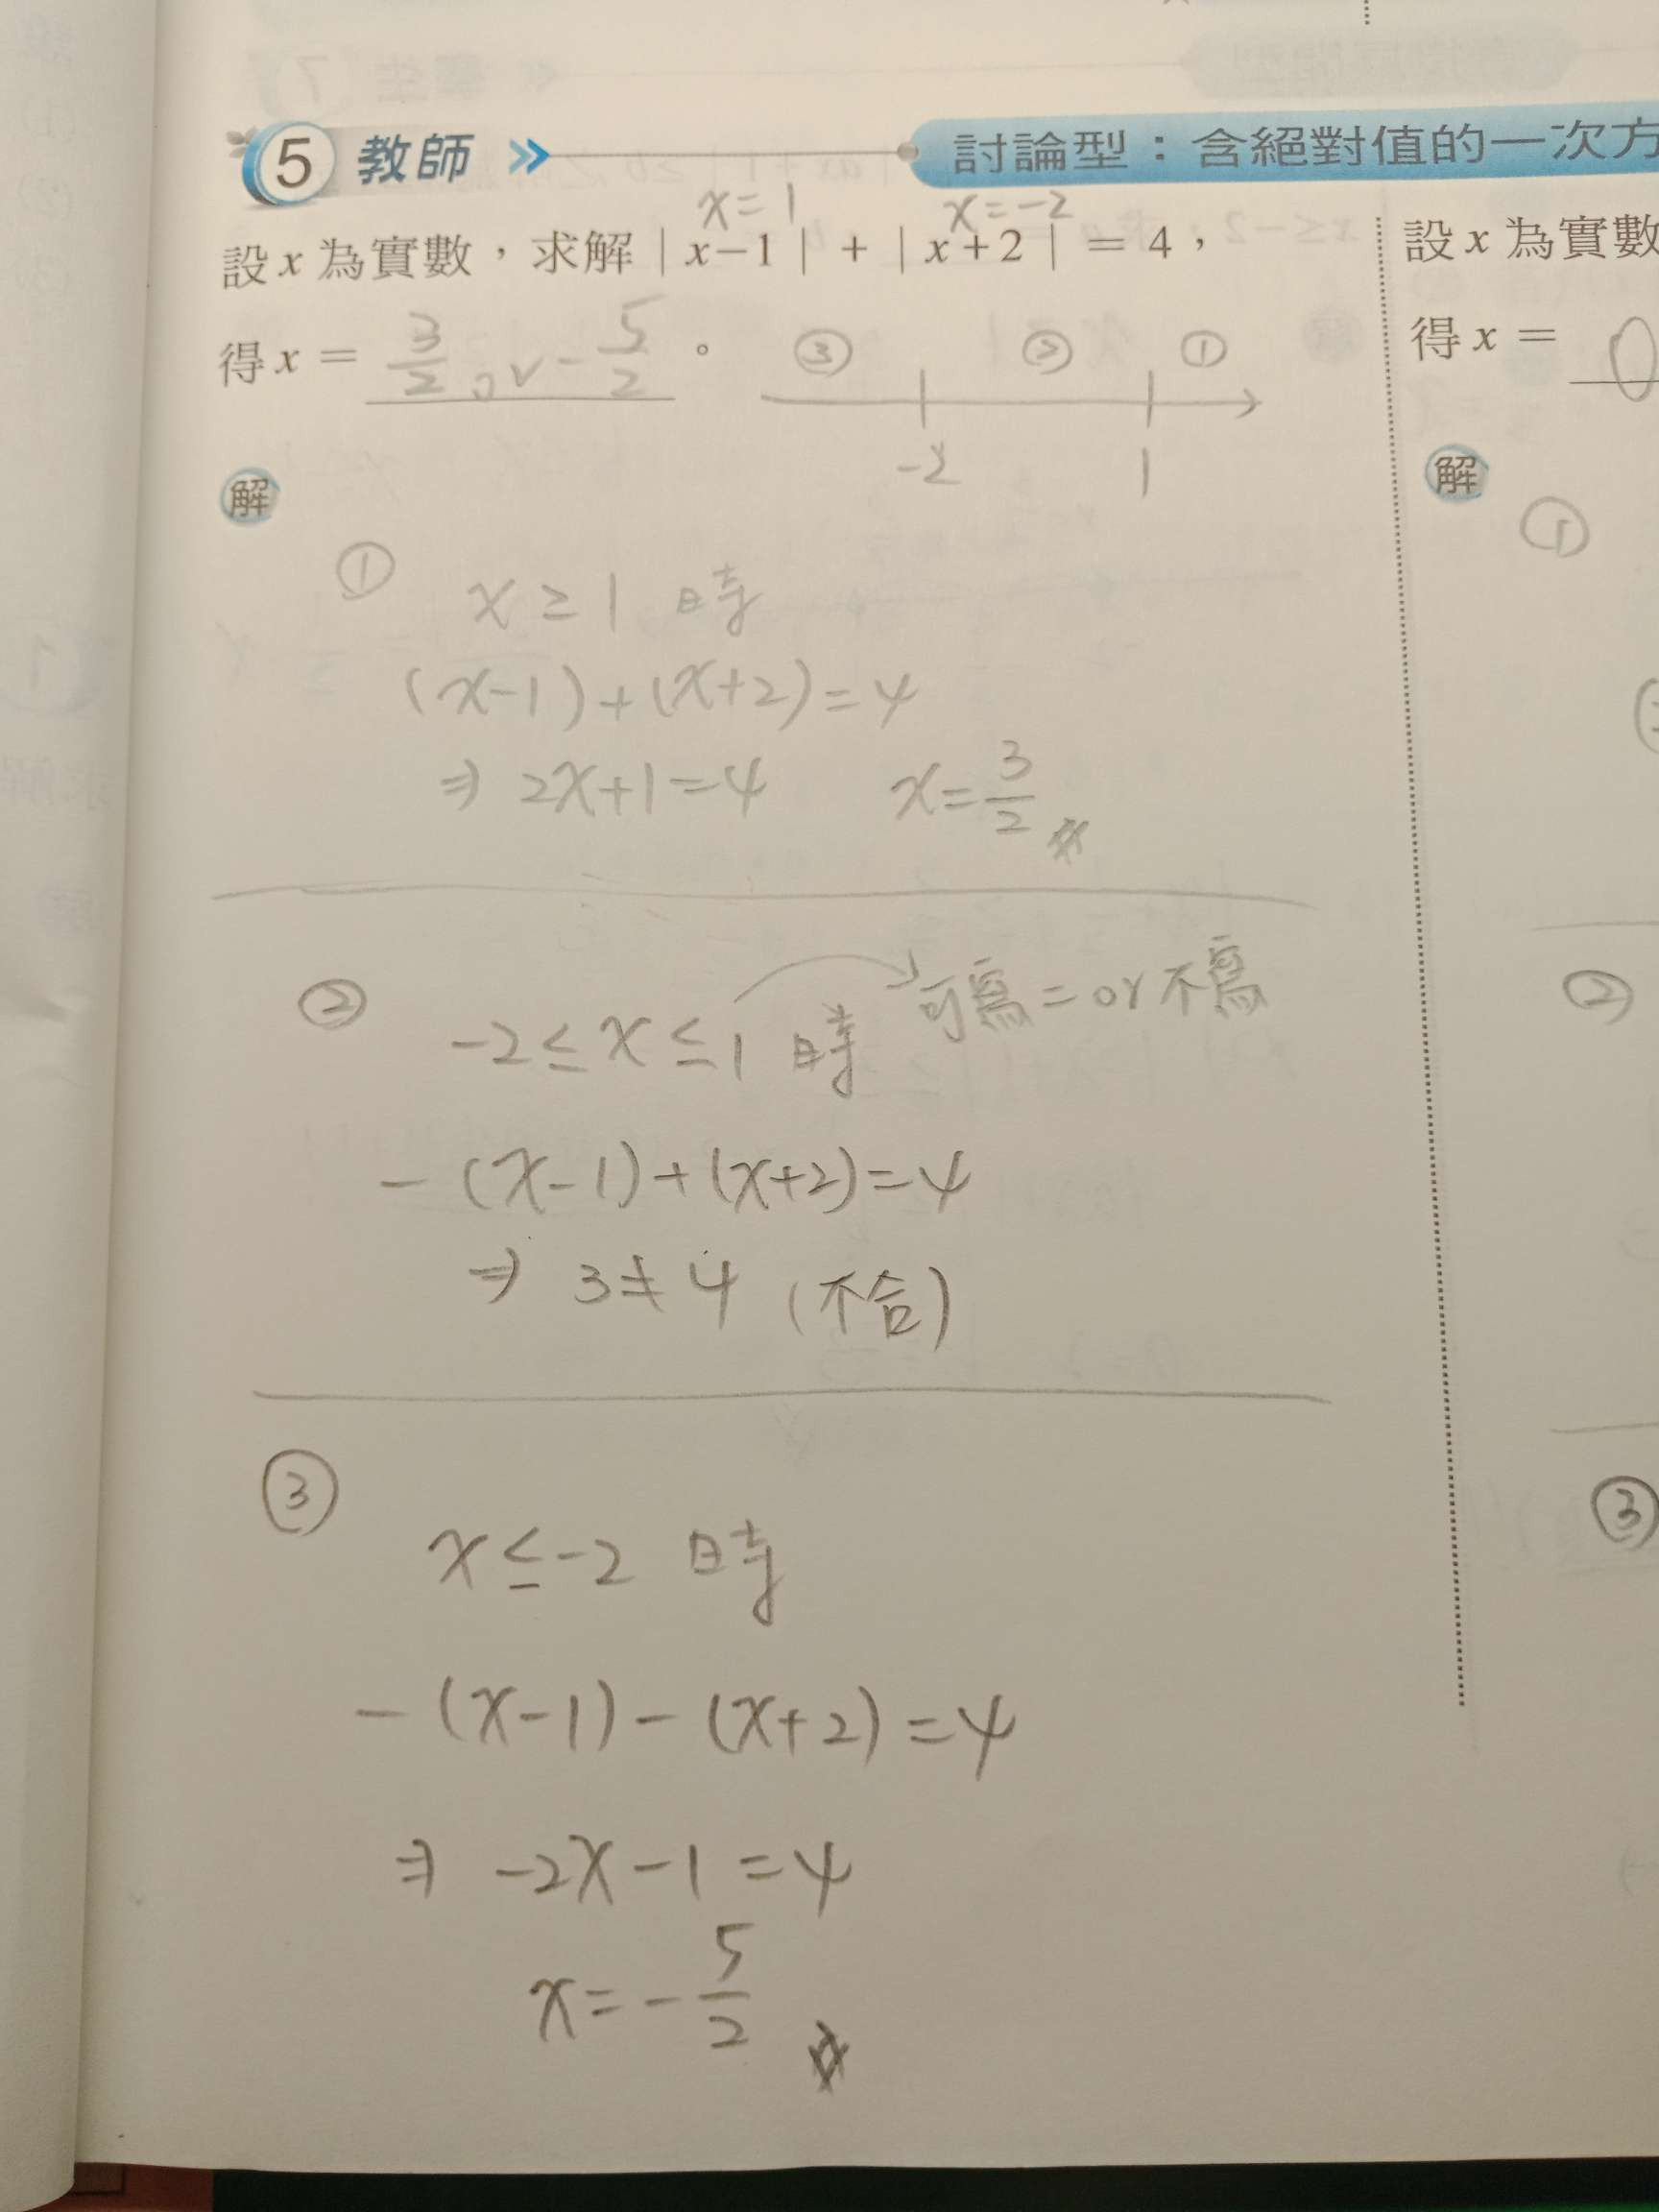 5 教師 討論型：含絕對值的一次方
x=1 x=-2
設 x 為實數，求解 | x-1 | + | x+2 | = 4，
得 x = 3/2 or -5/2 。
③ ② ①
-2 1
解
① x ≥ 1 時
(x-1)+(x+2)=4
⇒ 2x+1=4 x=3/2
② -2 ≤ x ≤ 1 時 → 可寫 = or 不寫
-(x-1)+(x+2)=4
⇒ 3≠4 (不合)
③
x ≤ -2 時
-(x-1)-(x+2)=4
⇒ -2x-1=4
x=-5/2
設 x 為實數
得 x = 0
解
①
②
③